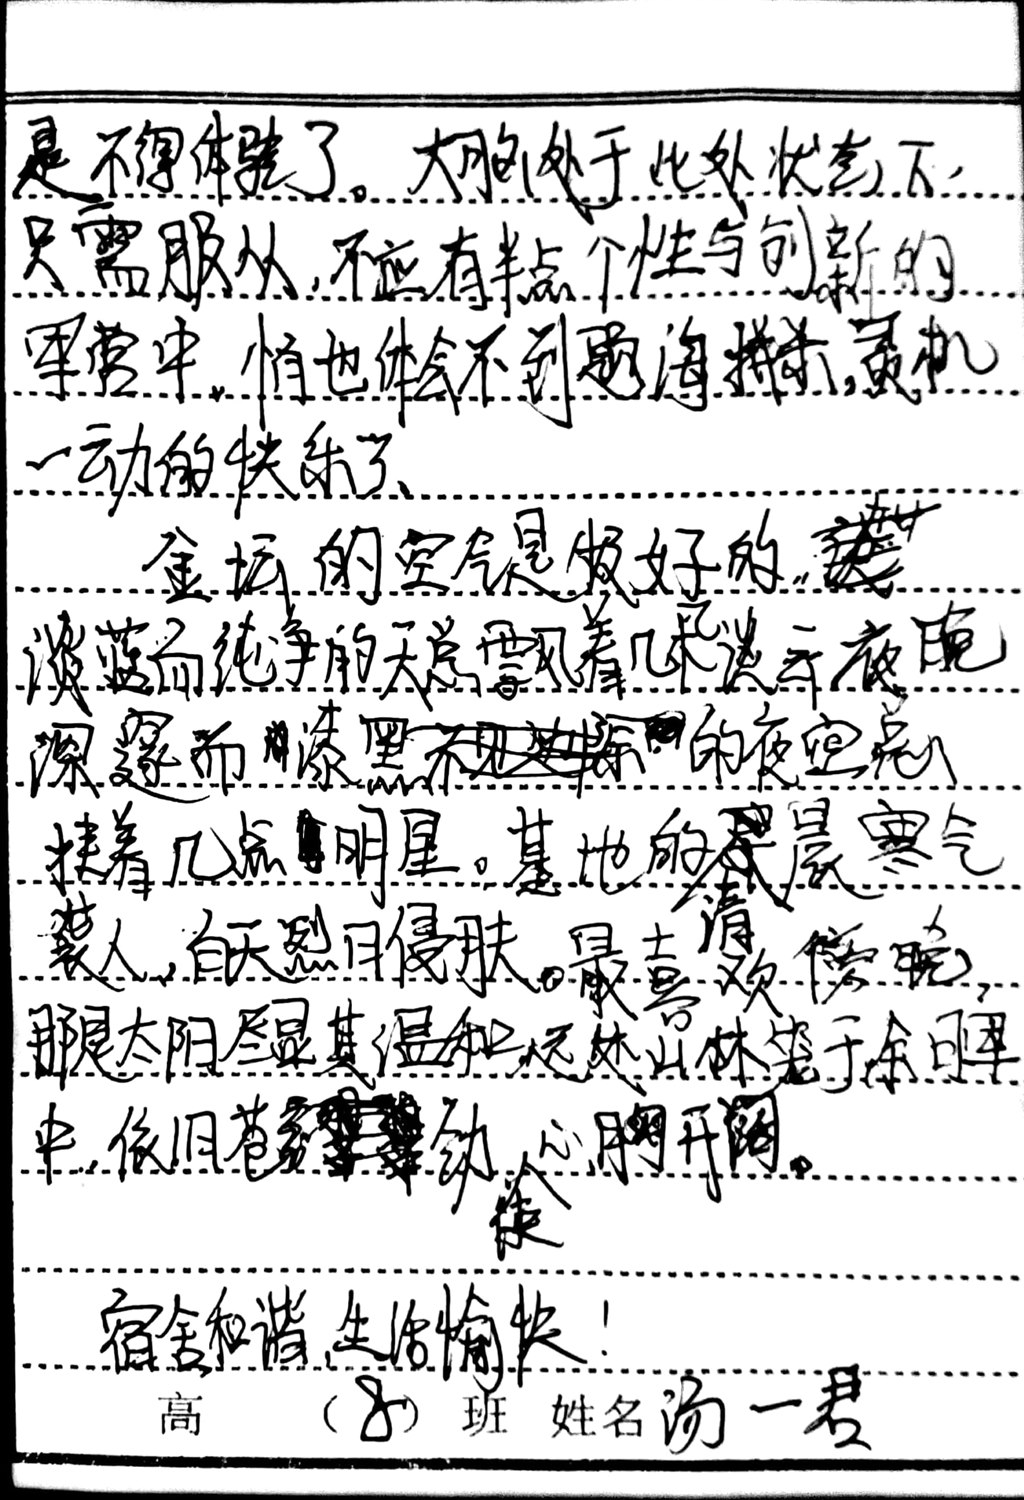 是不得体验了。大脑处于此处状态下,
只需服从,不应有半点个性与创新的
军营中。怕也体会不到题海搏杀,灵机
一动的快乐了。
金坛的空气是极好的。
淡蓝而纯净的天总飘着几朵淡云,夜晚
深邃而漆黑的夜空总
挂着几点明星。基地的清晨寒气
袭人,白天烈日侵肤。最喜欢傍晚,
那是太阳尽显其温和,远处山林笼于余晖
中,依旧苍劲,使人心胸开阔。
宿舍和谐,生活愉快!
高 (8) 班 姓名 汤一君